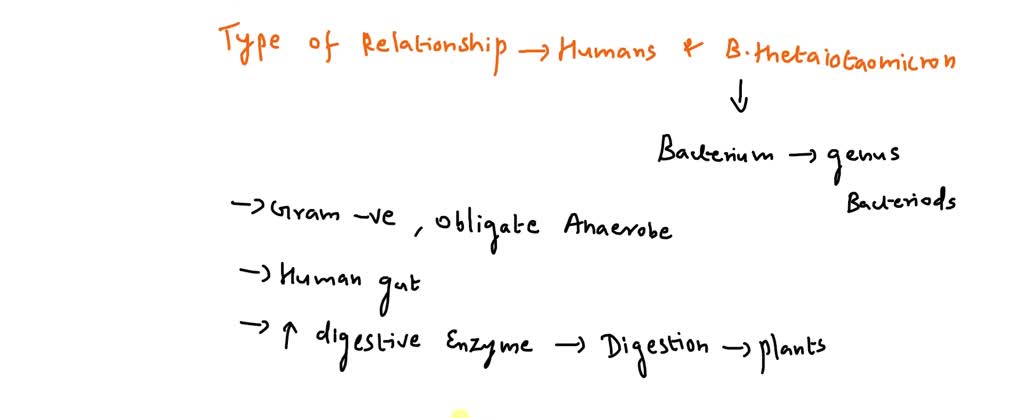 Type of Relationship → Humans & B.thetaiotaomicron
↓
Bacterium → genus
Bacteriods
→ Gram -ve, obligate Anaerobe
→ Human gut
→ ↑ digestive Enzyme → Digestion → plants